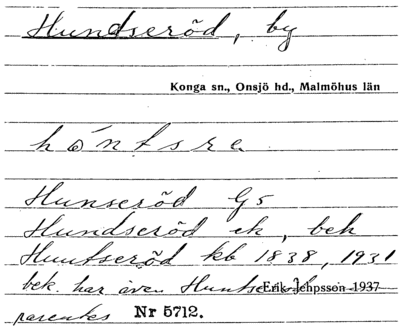 Hundseröd, by
Konga sn., Onsjö hd., Malmöhus län
hó̀ntsre
Hunseröd G5
Hundseröd ek, bek
Huntseröd kb 1838, 1931
bek. har även Huntseröd Erik Jeppsson 1937
parentes Nr 5712.